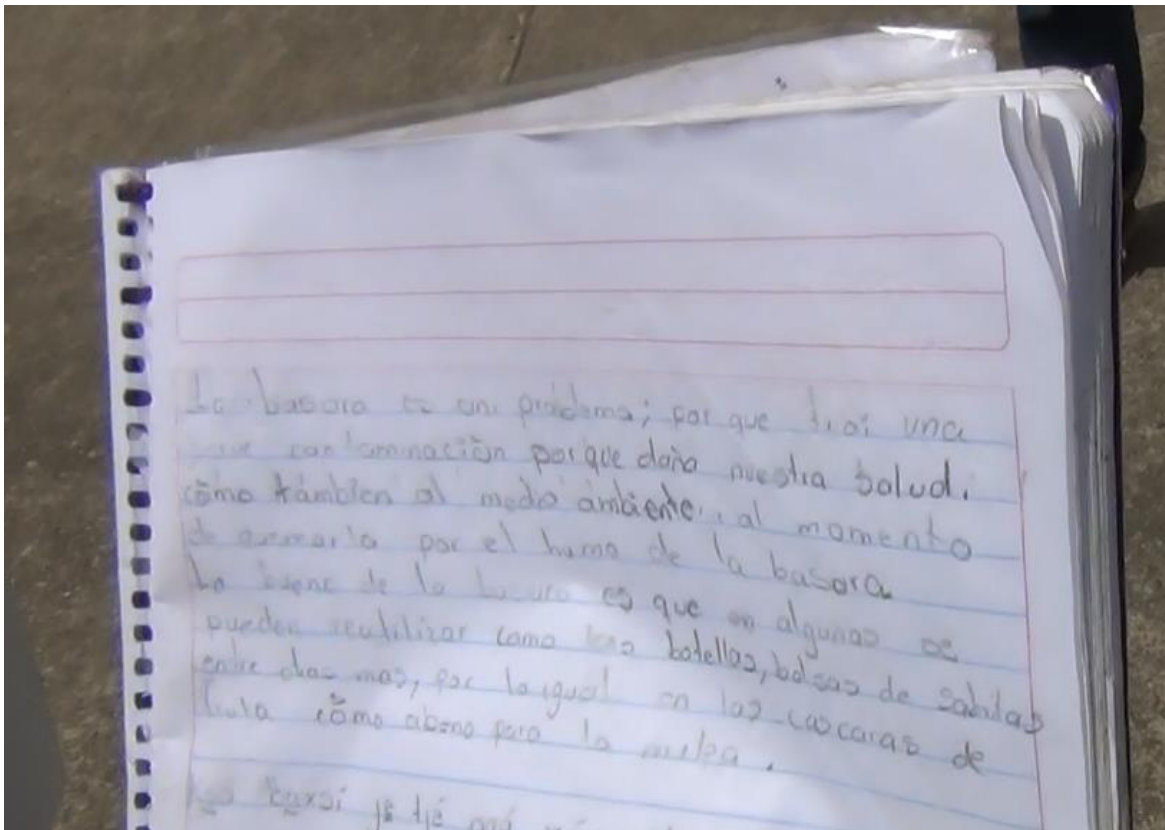 La basora es un problema; por que trai una
contaminación porque daña nuestra Salud.
cómo támbien al medio ámbiente, al momento
de quemarla por el humo de la basora
Lo buene de la basura es que en algunas se
pueden reutilizar como las botellas, bolsas de sabitas
entre otas mas, por lo igual en las cascaras de
fruta cómo abono para la milpa.